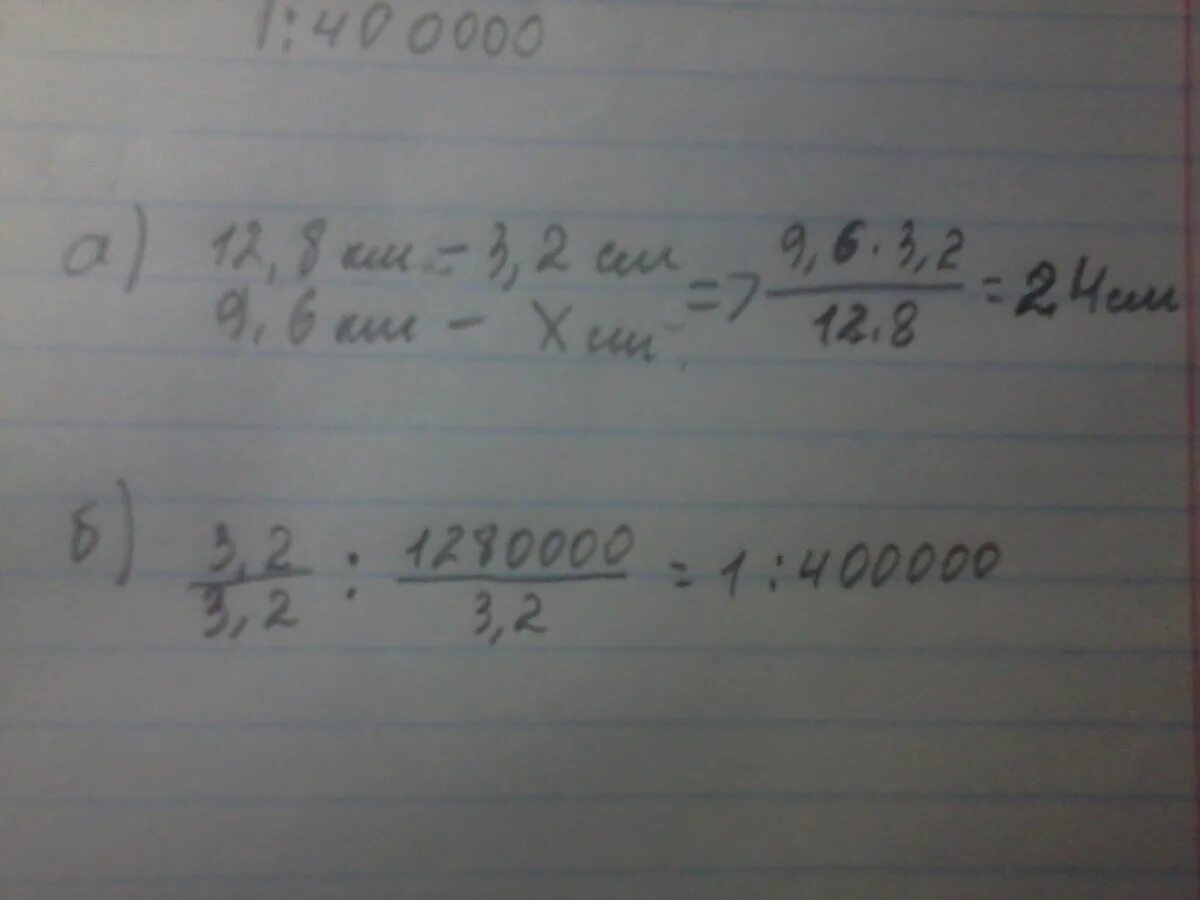 1:400000
а) 12,8 км = 3,2 см
9,6 км - X см => 9,6·3,2 / 12.8 = 24 см
б) 3,2 / 3,2 : 1280000 / 3,2 = 1:400000